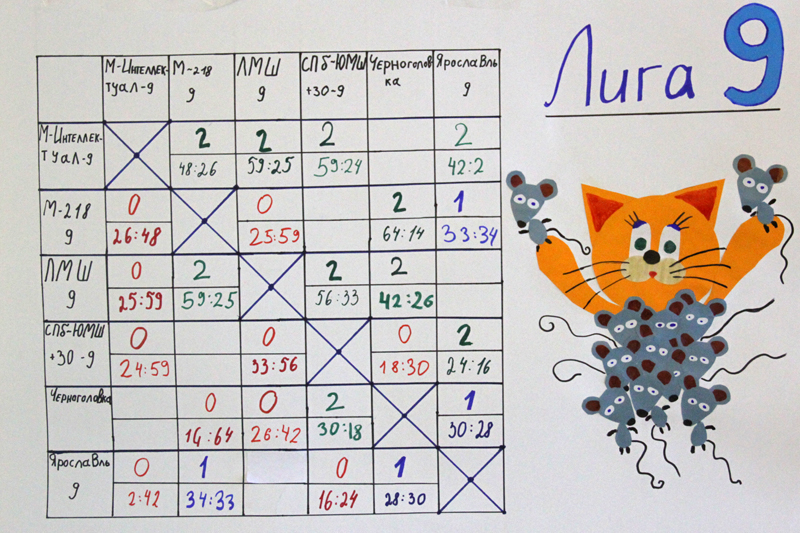 Лига 9
М-Интеллек-
туал-9
М-218
9
ЛМШ
9
СПб-ЮМШ
+30-9
Черноголов
ка
Ярославль
9
М-Интеллек-
туал-9
2 2 2 2
48:26 59:25 59:24 42:2
М-218
9
0 0 2 1
26:48 25:59 64:14 33:34
ЛМШ
9
0 2 2 2
25:59 59:25 56:33 42:26
СПб-ЮМШ
+30-9
0 0 0 2
24:59 33:56 18:30 24:16
Черноголовка
0 0 2 1
14:64 26:42 30:18 30:28
Ярославль
9
0 1 0 1
2:42 34:33 16:24 28:30